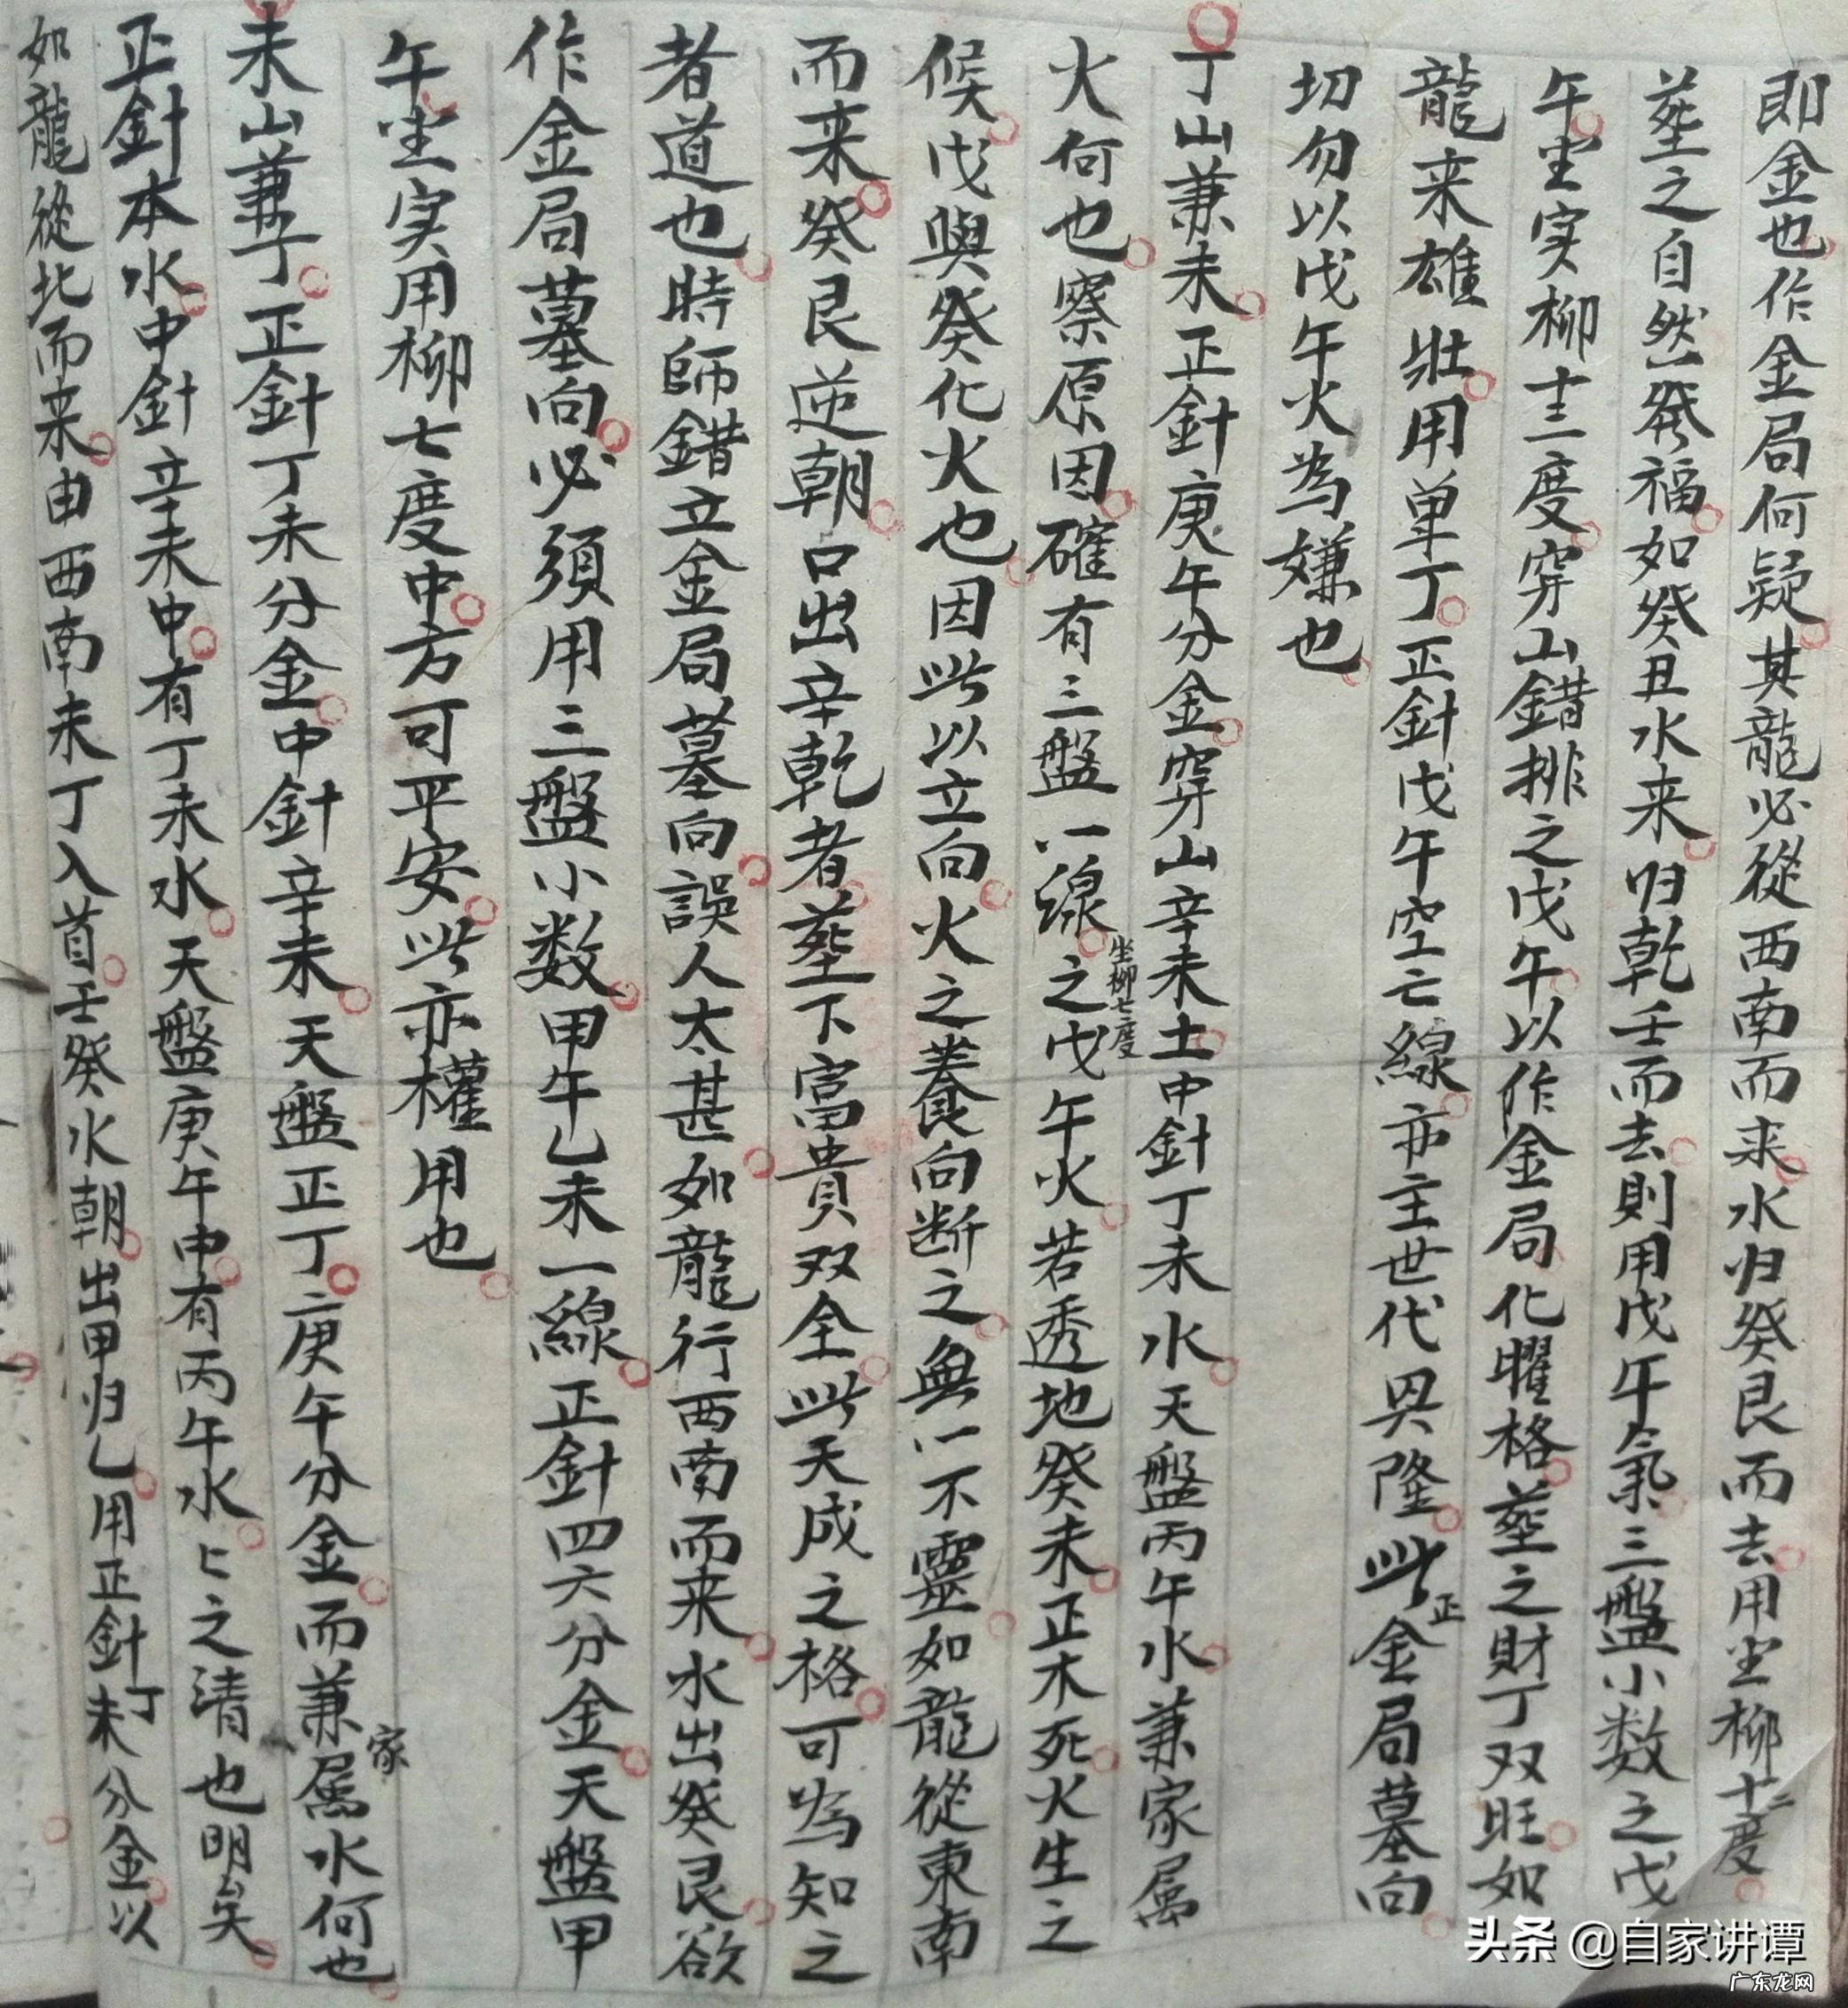 即金也作金局何疑其龍必從西南而来水归癸艮而去用坐柳十二度
葬之自然發福如癸丑水来归乾壬而去則用戊午氣三盤小数之戊
午坐实柳十三度穿山錯排之戊午以作金局化曜格葬之財丁双旺如
龍来雄壯用单丁正針戊午空亡線亦主世代興隆此正金局墓向
切勿以戊午火為嫌也
丁山兼未正針庚午分金穿山辛未土中針丁未水天盤丙午水兼家属
火何也察原因確有三盤一線坐柳七度之戊午火若透地癸未正木死火生之
候戊與癸化火也因此以立向火之養向断之無一不靈如龍從東南
而来癸艮逆朝口出辛乾者葬下富貴双全此天成之格可為知之
者道也時師錯立金局墓向誤人太甚如龍行西南而来水出癸艮欲
作金局墓向必須用三盤小数甲午乙未一線正針四六分金天盤甲
午坐实用柳七度中方可平安此亦權用也
未山兼丁正針丁未分金中針辛未天盤正丁庚午分金而兼家属水何也
正針本水中針辛未中有丁未水天盤庚午中有丙午水匕之清也明矣
如龍從北而来由西南未丁入首壬癸水朝出甲归乙用正針丁未分金以
头条 @自家讲谭
广东龙网